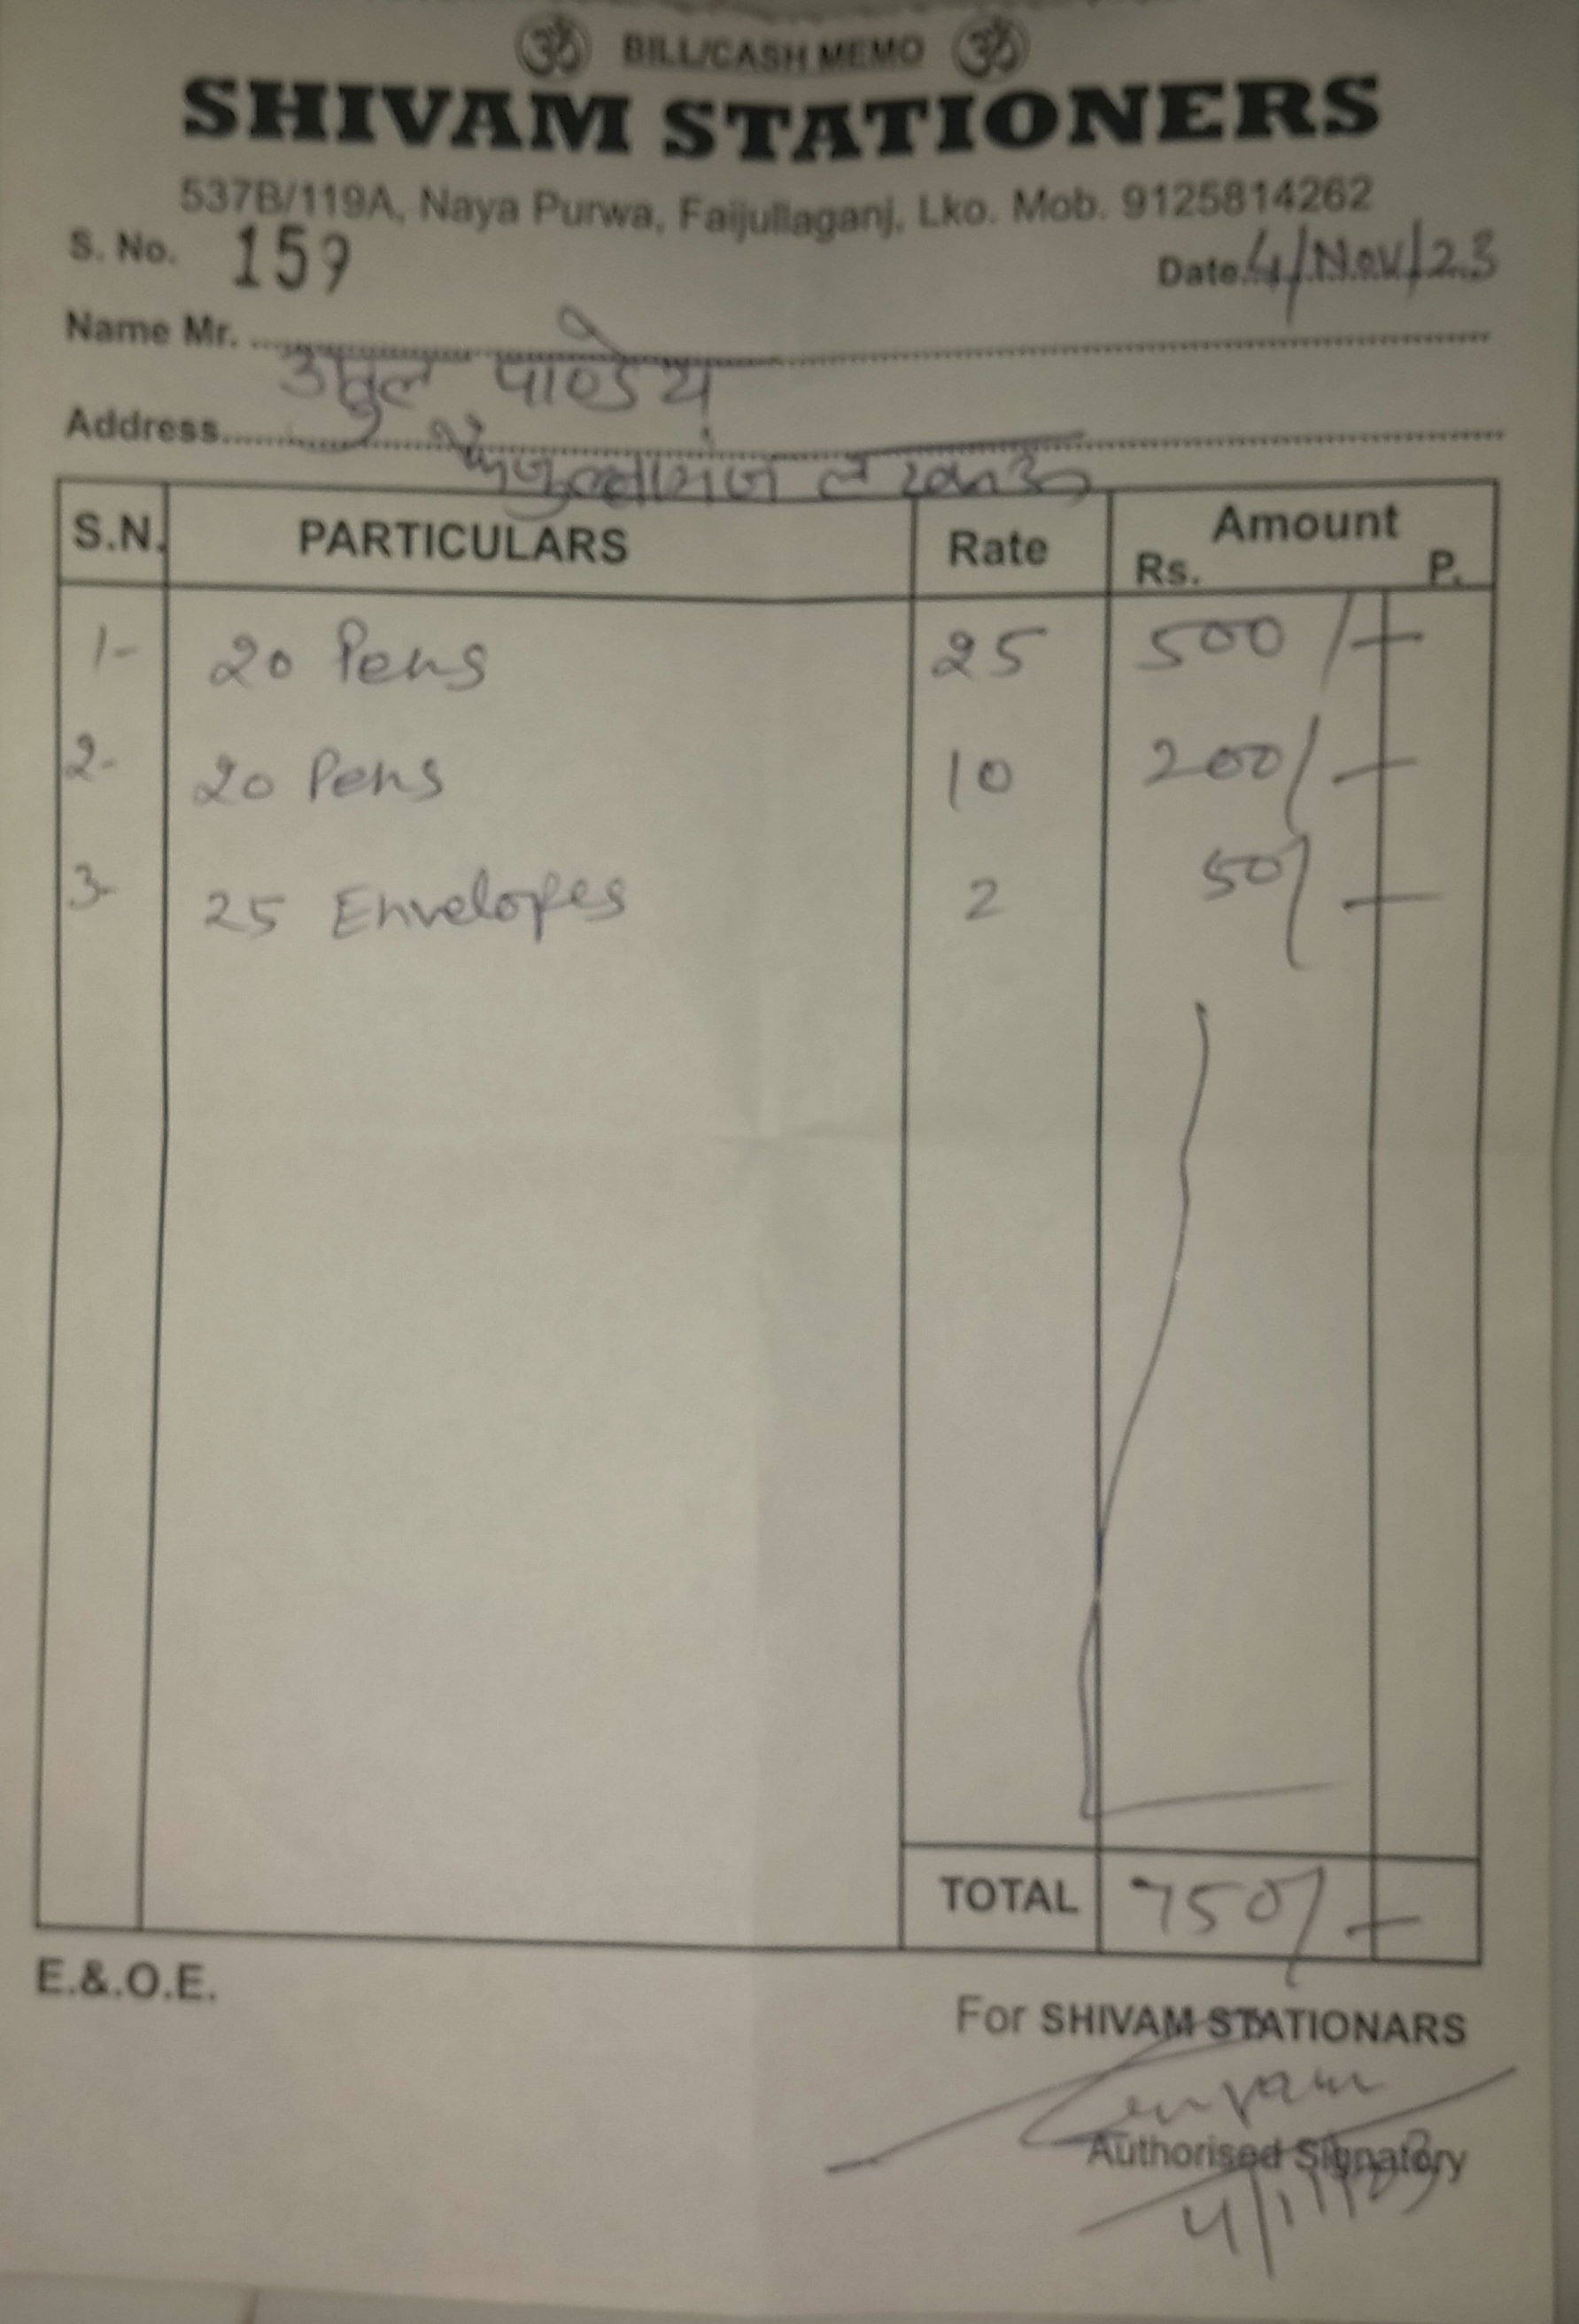 ॐ BILL/CASH MEMO ॐ
SHIVAM STATIONERS
537B/119A, Naya Purwa, Faijullaganj, Lko. Mob. 9125814262
S. No. 159 Date 4/Nov/23
Name Mr. पाण्डेय
Address फैजुल्लागंज लखनऊ
S.N. PARTICULARS Rate Amount
Rs. P.
1- 20 Pens 25 500/-
2- 20 Pens 10 200/-
3- 25 Envelopes 2 50/-
TOTAL 750/-
E.&.O.E.
For SHIVAM STATIONARS
Authorised Signatory
4/11/23